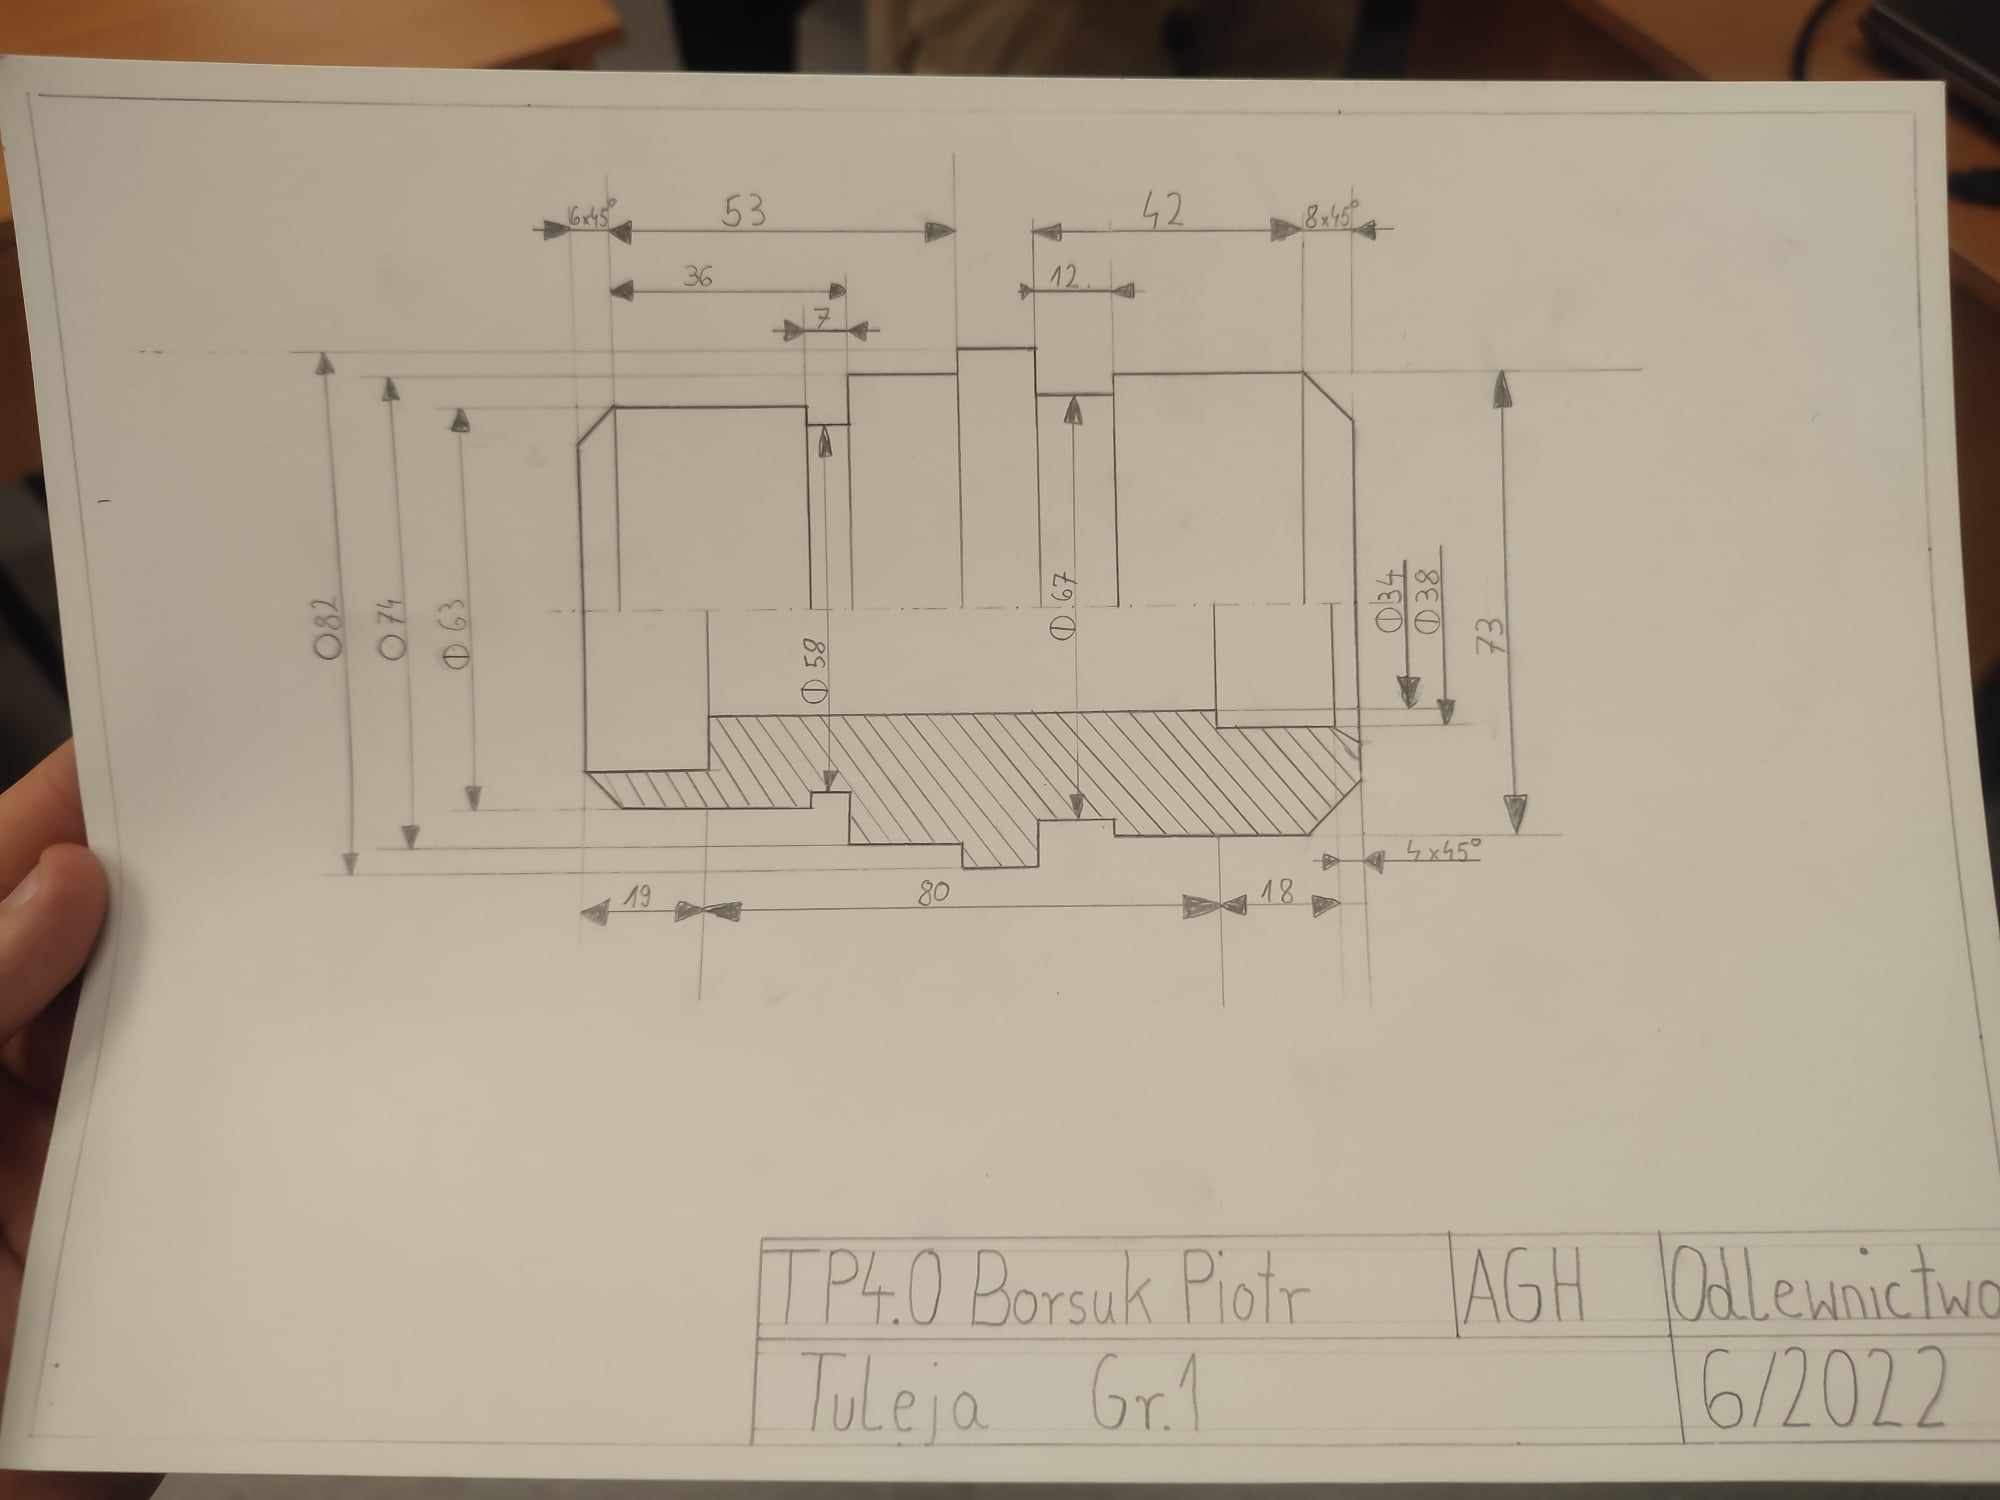 6x45° 53 42 8x45°
36 12.
7
O82 O74 Φ63 Φ58 Φ67 Φ34 Φ38 73
4x45°
19 80 18
TP4.0 Borsuk Piotr AGH Odlewnictwo
Tuleja Gr.1 6/2022